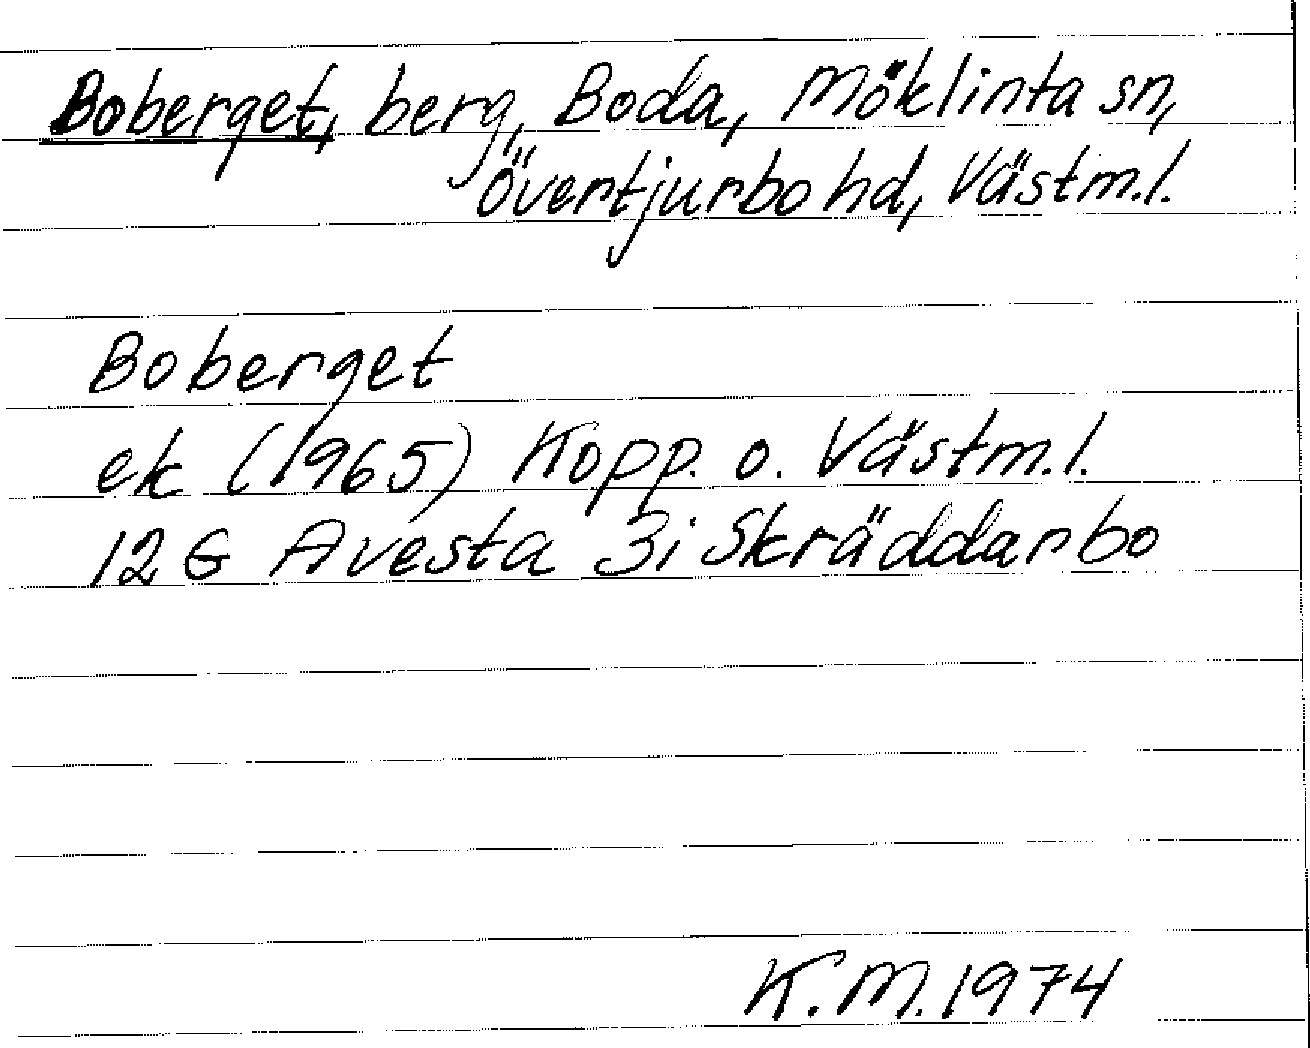 Boberget, berg, Boda, Möklinta sn,
Övertjurbo hd, Västm.l.
Boberget
ek (1965) Kopp. o. Västm.l.
12 G Avesta 3i Skräddarbo
K.M. 1974